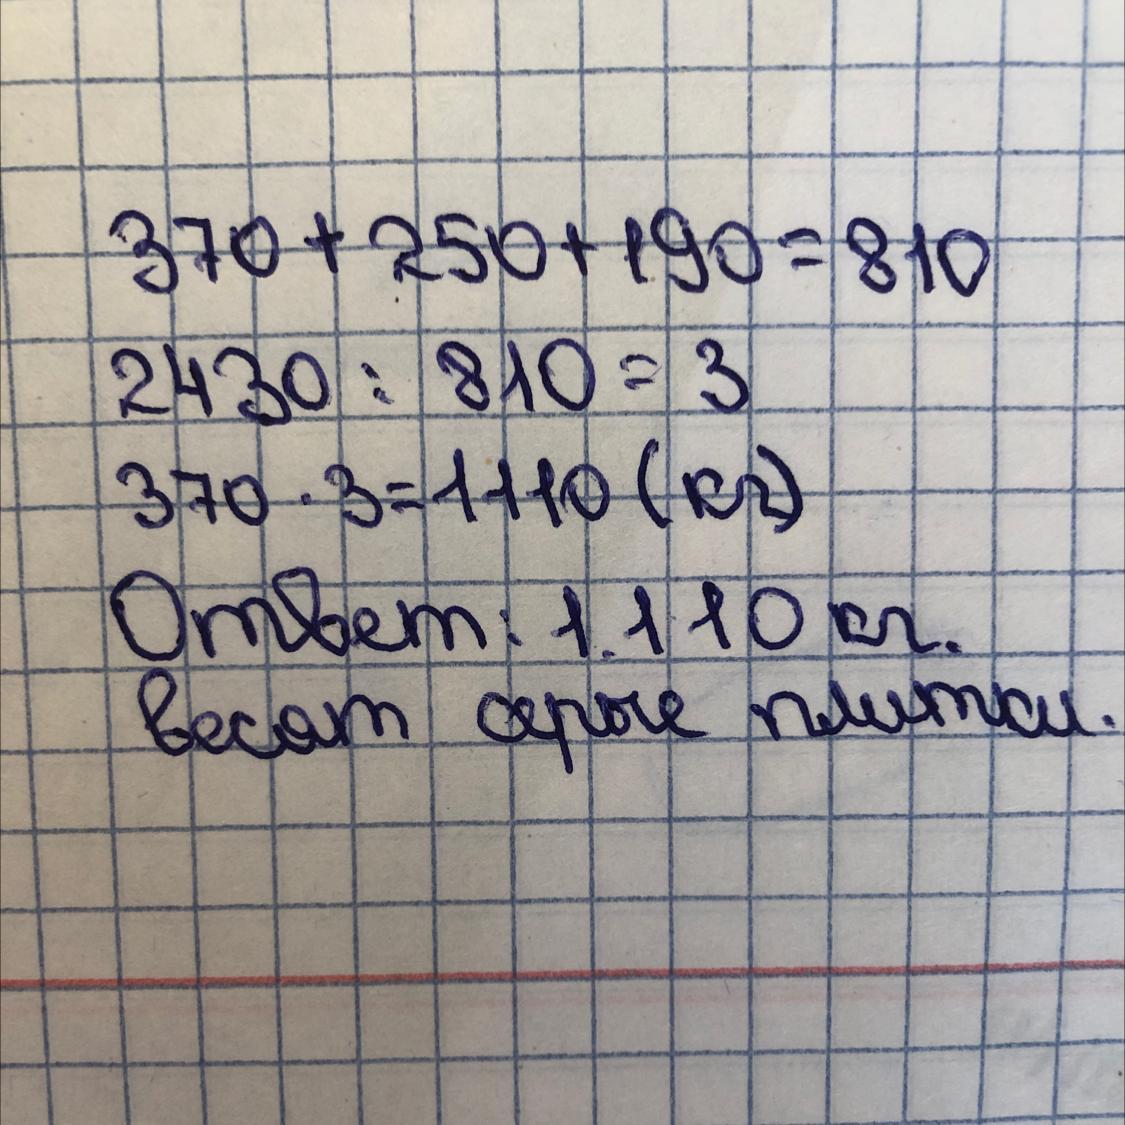 370 + 250 + 190 = 810
2430 : 810 = 3
370 · 3 = 1110 (кг)
Ответ: 1.110 кг.
весят серые плитки.